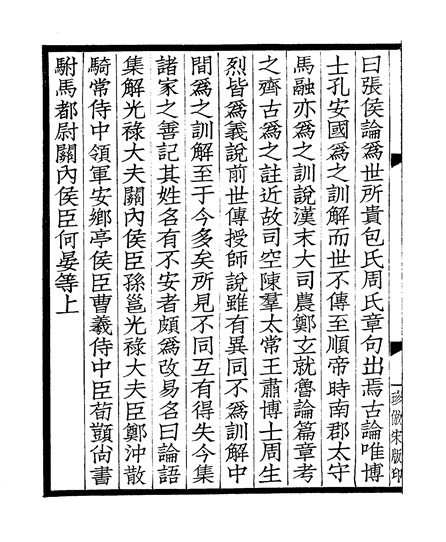 曰張侯論爲世所貴包氏周氏章句出焉古論唯博
士孔安國爲之訓解而世不傳至順帝時南郡太守
馬融亦爲之訓說漢末大司農鄭玄就魯論篇章考
之齊古爲之註近故司空陳羣太常王肅博士周生
烈皆爲義說前世傳授師說雖有異同不爲訓解中
間爲之訓解至于今多矣所見不同互有得失今集
諸家之善記其姓名有不安者頗爲改易名曰論語
集解光祿大夫關內侯臣孫邕光祿大夫臣鄭沖散
騎常侍中領軍安鄉亭侯臣曹羲侍中臣荀顗尙書
駙馬都尉關內侯臣何晏等上
珍倣宋版印